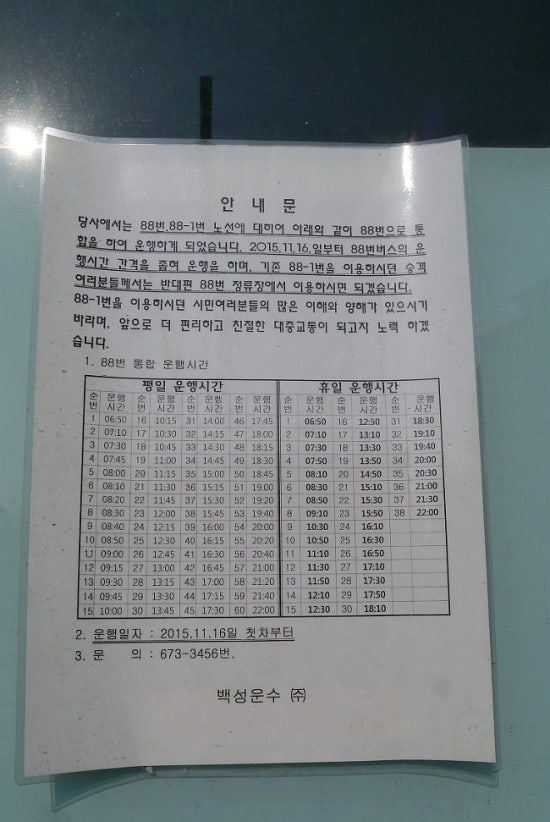 안 내 문
당사에서는 88번,88-1번 노선에 대하여 아래와 같이 88번으로 통
합을 하여 운행하게 되었습니다. 2015.11.16.일부터 88번버스의 운
행시간 간격을 좁혀 운행을 하며, 기존 88-1번을 이용하시던 승객
여러분들께서는 반대편 88번 정류장에서 이용하시면 되겠습니다.
88-1번을 이용하시던 시민여러분들의 많은 이해와 양해가 있으시기
바라며, 앞으로 더 편리하고 친절한 대중교통이 되고자 노력 하겠
습니다.
1. 88번 통합 운행시간
평일 운행시간 휴일 운행시간
순번 운행시간 순번 운행시간 순번 운행시간 순번 운행시간 순번 운행시간 순번 운행시간 순번 운행시간
1 06:50 16 10:15 31 14:00 46 17:45 1 06:50 16 12:50 31 18:30
2 07:10 17 10:30 32 14:15 47 18:00 2 07:10 17 13:10 32 19:10
3 07:30 18 10:45 33 14:30 48 18:15 3 07:30 18 13:30 33 19:40
4 07:45 19 11:00 34 14:45 49 18:30 4 07:50 19 13:50 34 20:00
5 08:00 20 11:15 35 15:00 50 18:45 5 08:10 20 14:50 35 20:30
6 08:10 21 11:30 36 15:15 51 19:00 6 08:30 21 15:10 36 21:00
7 08:20 22 11:45 37 15:30 52 19:20 7 08:50 22 15:30 37 21:30
8 08:30 23 12:00 38 15:45 53 19:40 8 09:10 23 15:50 38 22:00
9 08:40 24 12:15 39 16:00 54 20:00 9 10:30 24 16:10
10 08:50 25 12:30 40 16:15 55 20:20 10 10:50 25 16:30
11 09:00 26 12:45 41 16:30 56 20:40 11 11:10 26 16:50
12 09:15 27 13:00 42 16:45 57 21:00 12 11:30 27 17:10
13 09:30 28 13:15 43 17:00 58 21:20 13 11:50 28 17:30
14 09:45 29 13:30 44 17:15 59 21:40 14 12:10 29 17:50
15 10:00 29 13:45 45 17:30 60 22:00 15 12:30 30 18:10
2. 운행일자 : 2015.11.16일 첫차부터
3. 문 의 : 673-3456번.
백성운수 ㈜